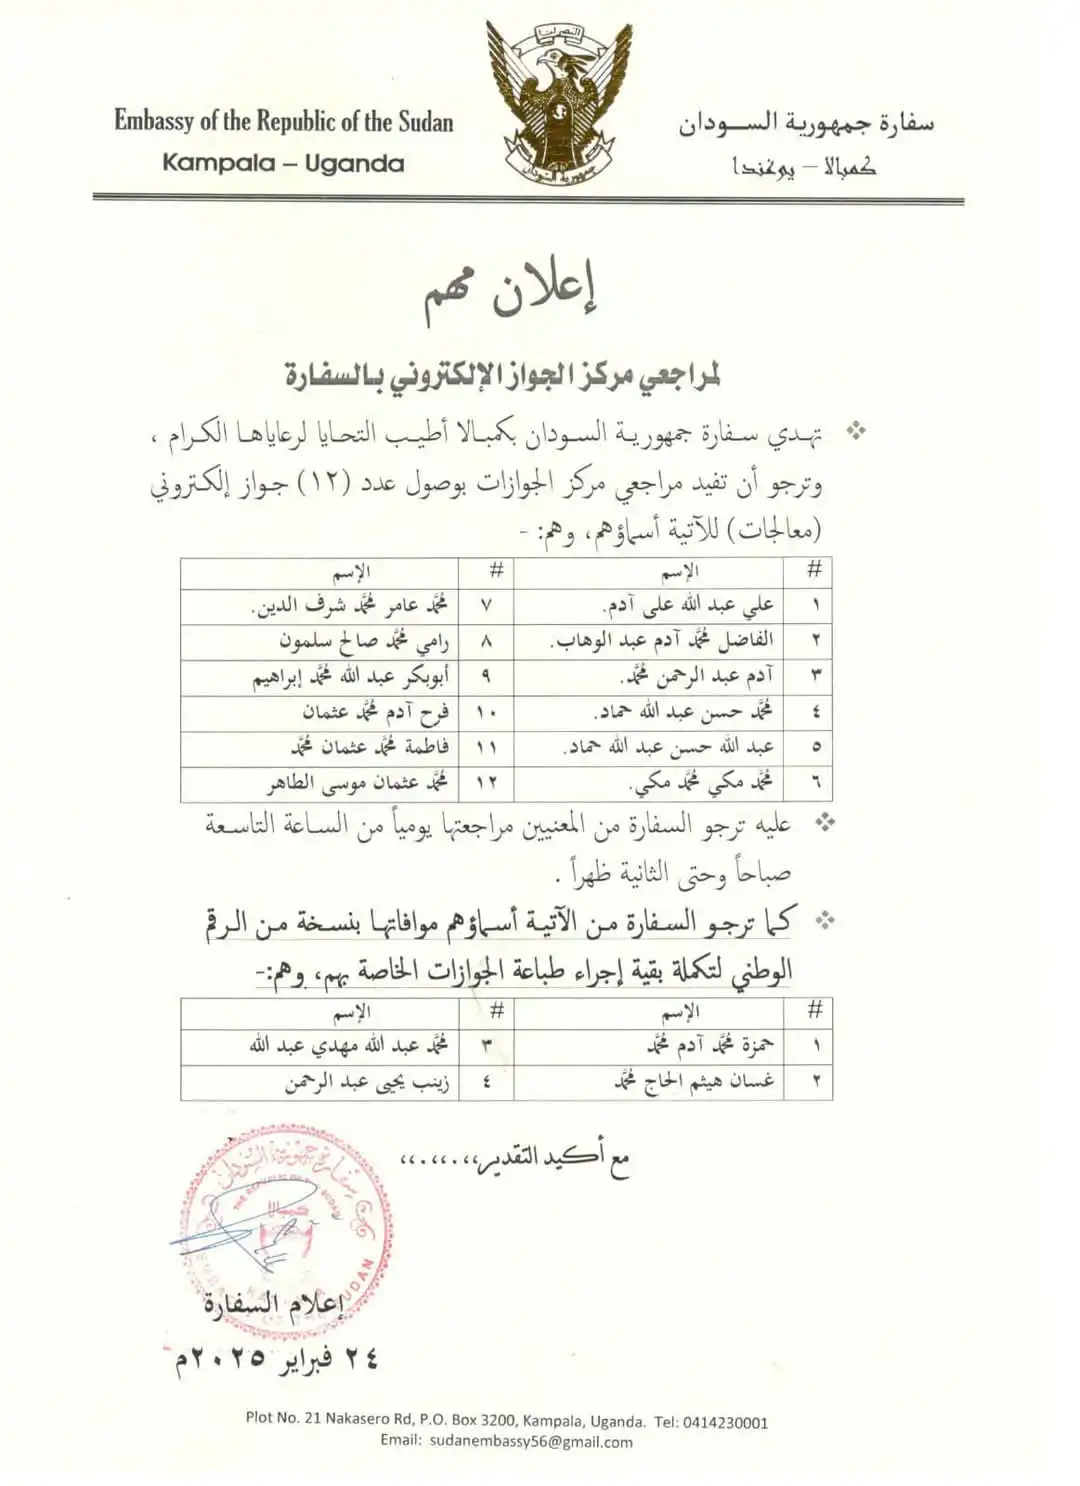 النصر لنا
جمهورية السودان
Embassy of the Republic of the Sudan
Kampala – Uganda
سفارة جمهورية الســودان
كمبالا – يوغندا
إعلان مهم
لمراجعي مركز الجواز الإلكتروني بالسفارة
❖ تهـدي سـفارة جمهوريـة السـودان بكمبـالا أطيـب التحـايا لرعاياهـا الكـرام ،
وترجو أن تفيد مراجعي مركز الجوازات بوصول عدد (١٢) جـواز إلكـتروني
(معالجات) للآتية أسماؤهم، وهم: -
# الإسم # الإسم
١ علي عبد الله على آدم. ٧ محمد عامر محمد شرف الدين.
٢ الفاضل محمد آدم عبد الوهاب. ٨ رامي محمد صالح سلمون
٣ آدم عبد الرحمن محمد. ٩ أبوبكر عبد الله محمد إبراهيم
٤ محمد حسن عبد الله حماد. ١٠ فرح آدم محمد عثمان
٥ عبد الله حسن عبد الله حماد. ١١ فاطمة محمد عثمان محمد
٦ محمد مكي محمد مكي. ١٢ محمد عثمان موسى الطاهر
❖ عليه ترجو السفارة من المعنيين مراجعتها يومياً من الساعة التاسعة
صباحاً وحتى الثانية ظهراً .
❖ كما ترجـو السـفارة مـن الآتيـة أسـماؤهم موافاتهـا بنسـخة مـن الـرقم
الوطني لتكملة بقية إجراء طباعة الجوازات الخاصة بهم، وهم:-
# الإسم # الإسم
١ حمزة محمد آدم محمد ٣ محمد عبد الله مهدي عبد الله
٢ غسان هيثم الحاج محمد ٤ زينب يحيى عبد الرحمن
مع أكيد التقدير،،.،،.،،
سفارة جمهورية السودان
THE REPUBLIC OF THE SUDAN
كمبالا
إعلام السفارة
٢٤ فبراير ٢٠٢٥م
Plot No. 21 Nakasero Rd, P.O. Box 3200, Kampala, Uganda. Tel: 0414230001
Email: sudanembassy56@gmail.com